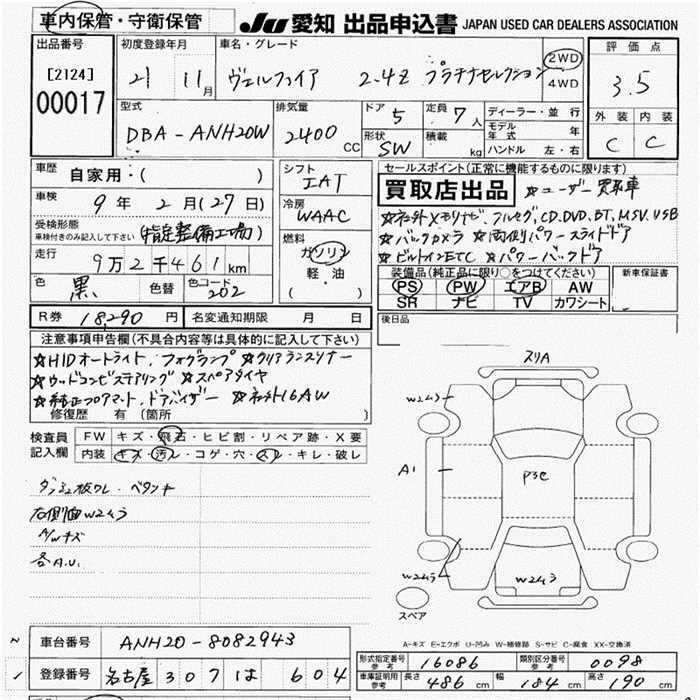 車内保管・守衛保管 JU 愛知 出品申込書 JAPAN USED CAR DEALERS ASSOCIATION
出品番号 初度登録年月 車名・グレード 評価点
[2124] 00017 21 11月 ヴェルファイア 2.4Z プラチナセレクション 2WD 4WD 3.5
型式 排気量 ドア 5 定員 7人 ディーラー・並行 外装 内装
DBA-ANH20W 2400CC 形状 SW 積載 kg モデル年式 年 ハンドル 左・右 C C
車歴 自家用( ) シフト IAT セールスポイント(正常に機能するものに限ります)
車検 9年2月(27日) 冷房 WAAC 買取店出品 ☆ユーザー買取車
受検形態 車検付きのみ記入して下さい (指定整備工場) 燃料 ガソリン 軽油 ( )
☆社外メモリナビ、フルセグ,CD.DVD.BT.MSV.USB
☆バックカメラ ☆両側パワースライドドア
☆ビルトインETC ☆パワーバックドア
走行 9万2千461km
色 黒 色替 色コード 202
装備品(純正品に限り○をつけてください) 新車保証書
PS PW エアB AW
SR ナビ TV カワシート
R券 18,290円 名変通知期限 月 日 後日品
注意事項申告欄(不具合内容等は具体的に記入して下さい)
☆HIDオートライト,フォグランプ ☆クリアランスソナー
☆ウッドコンビステアリング ☆スペアタイヤ
☆純正フロアマット,ドアバイザー ☆社外16AW
修復歴 有(箇所 )
検査員記入欄 FW キズ・飛石・ヒビ割・リペア跡・X要
内装 キズ・汚レ・コゲ・穴・スレ・キレ・破レ
右側面W2ムラ
A/Wキズ
各A.U.
スリA
W2ムラ
A1
P3色
W2ムラ
W2ムラ
スペア
A-キズ E-エクボ U-凹み W-補修跡 S-サビ C-腐食 XX-交換済
車台番号 ANH20-8082943
形式指定番号参考 16086 類別区分番号参考 0098
登録番号 名古屋 307 は 604
車庫証明用参考 長さ 486cm 幅 184cm 高さ 190cm